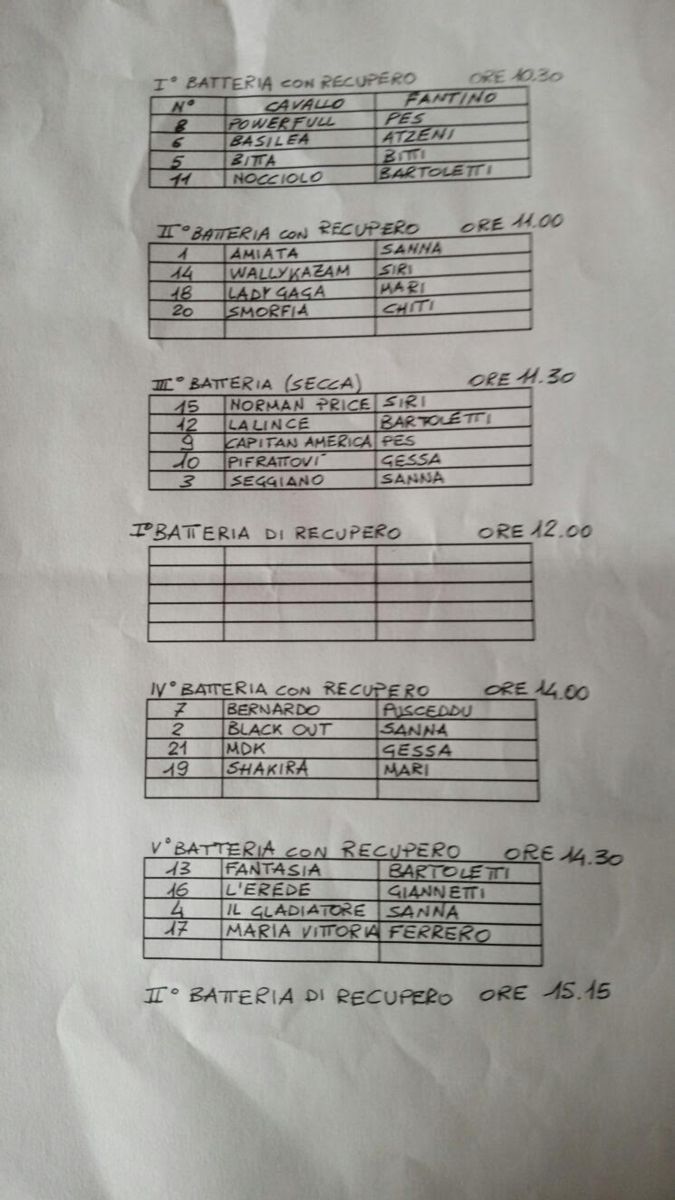 I° BATTERIA CON RECUPERO ORE 10.30
N° CAVALLO FANTINO
8 POWERFULL PES
6 BASILEA ATZENI
5 BITTA BITTI
11 NOCCIOLO BARTOLETTI
II° BATTERIA CON RECUPERO ORE 11.00
1 AMIATA SANNA
14 WALLYKAZAM SIRI
18 LADY GAGA MARI
20 SMORFIA CHITI
III° BATTERIA (SECCA) ORE 11.30
15 NORMAN PRICE SIRI
12 LALINCE BARTOLETTI
9 CAPITAN AMERICA PES
10 PIFRATTOVI' GESSA
3 SEGGIANO SANNA
I° BATTERIA DI RECUPERO ORE 12.00
IV° BATTERIA CON RECUPERO ORE 14.00
7 BERNARDO PUSCEDDU
2 BLACK OUT SANNA
21 MDK GESSA
19 SHAKIRA MARI
V° BATTERIA CON RECUPERO ORE 14.30
13 FANTASIA BARTOLETTI
16 L'EREDE GIANNETTI
4 IL GLADIATORE SANNA
17 MARIA VITTORIA FERRERO
II° BATTERIA DI RECUPERO ORE 15.15